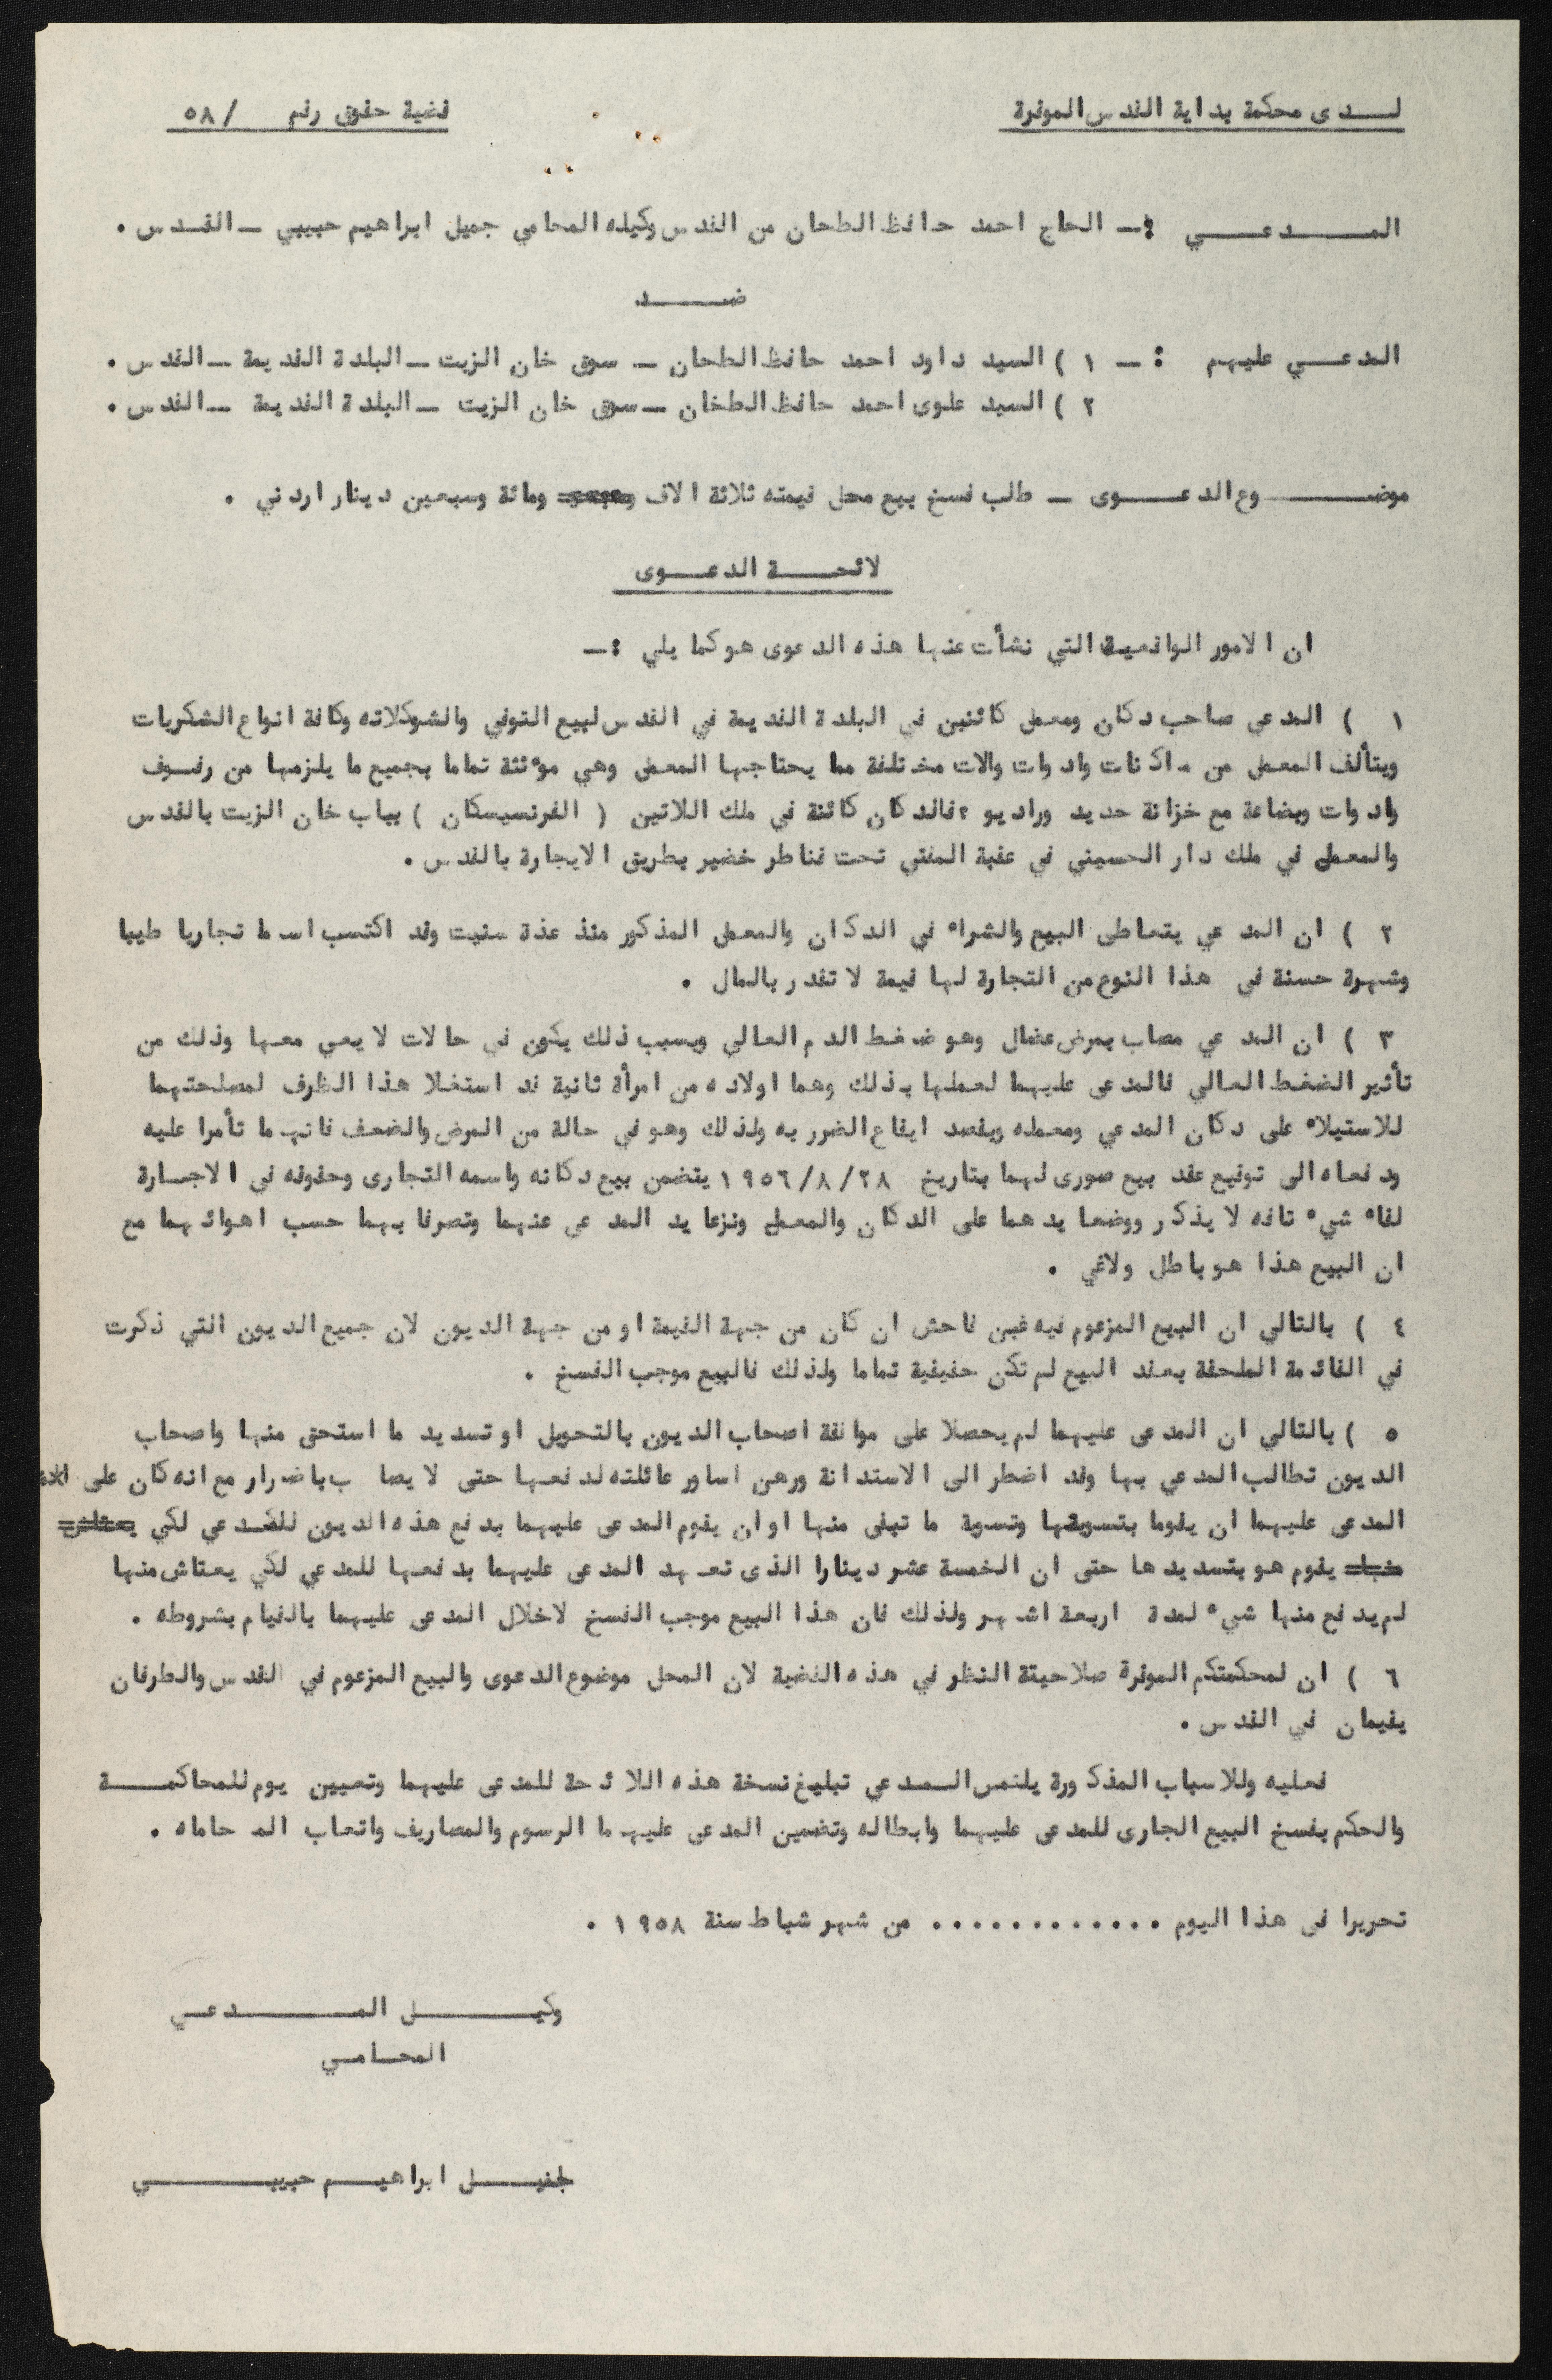 لــدى محكمة بداية القدس الموقرة
قضية حقوق رقم /٥٨
المــدعــي :ـ الحاج احمد حافظ الطحان من القدس وكيله المحامي جميل ابراهيم حبيبي ــ القـدس .
ضــد
المدعــي عليهم : ــ ١ ) السيد داود احمد حافظ الطحان ــ سوق خان الزيت ــ البلدة القديمة ــ القدس .
٢ ) السيد علوى احمد حافظ الطخان ــ سوق خان الزيت ــ البلدة القديمة ــ القدس .
موضــوع الدعــوى ــ طلب فسخ بيع محل قيمته ثلاثة الاف ومائة وسبعين دينار اردني .
لائحــة الدعــوى
ان الامور الواقعية التي نشأت عنها هذه الدعوى هو كما يلي :ــ
١ ) المدعي صاحب دكان ومعمل كائنين في البلدة القديمة في القدس لبيع التوفي والشوكلاته وكافة انواع الشكريات
ويتألف المعمل من ماكنات وادوات والات مختلفة مما يحتاجها المعمل وهي مؤثثة تماما بجميع ما يلزمها من رفـوف
وادوات وبضاعة مع خزانة حديد وراديو ٢ فالدكان كائنة في ملك اللاتين ( الفرنسيسكان ) بباب خان الزيت بالقدس
والمعمل في ملك دار الحسيني في عقبة المفتي تحت قناطر خضير بطريق الايجارة بالقدس .
٢ ) ان المدعي يتعاطى البيع والشراء في الدكان والمعمل المذكور منذ عذة سنيت وقد اكتسب اسما تجاريا طيبا
وشهرة حسنة فى هذا النوع من التجارة لها قيمة لا تقدر بالمال .
٣ ) ان المدعي مصاب بمرض عضال وهو ضغط الدم العالي وبسبب ذلك يكون في حالات لا يعي معها وذلك من
تأثير الضغط العالي فالمدعى عليهما لعملها بذلك وهما اولاده من امرأة ثانية قد استغلا هذا الظرف لمصلحتهما
للاستيلاء على دكان المدعي ومعمله وبقصد ايقاع الضرر به ولذلك وهو في حالة من المرض والضعف فانهما تأمرا عليه
ودفعاه الى توقيع عقد بيع صورى لهما بتاريخ ١٩٥٦/٨/٢٨ يتضمن بيع دكانه واسمه التجارى وحقوقه فى الاجـارة
لقاء شيء تافه لا يذكر ووضعا يدهما على الدكان والمعمل ونزعا يد المدعى عنهما وتصرفا بهما حسب اهوائهما مع
ان البيع هذا هو باطل ولاغي .
٤ ) بالتالي ان البيع المزعوم فيه غبن فاحش ان كان من جهة القيمة او من جهة الديون لان جميع الديون التي ذكرت
في القائمة الملحقة بعقد البيع لم تكن حقيقية تماما ولذلك فالبيع موجب الفسخ .
٥ ) بالتالي ان المدعى عليهما لم يحصلا على موافقة اصحاب الديون بالتحويل او تسديد ما استحق منها واصحاب
الديون تطالب المدعي بها وقد اضطر الى الاستدانة ورهن اساور عائلته لدفعها حتى لا يصاب باضرار مع انه كان على
المدعى عليهما ان يقوما بتسويقها وتسوية ما تبقى منها او ان يقوم المدعى عليهما بدفع هذه الديون للمدعي لكي
يقوم هو بتسديدها حتى ان الخمسة عشر دينارا الذى تعهد المدعى عليهما بدفعها للمدعي لكي يعتاش منها
لم يدفع منها شيء لمدة اربعة اشهر ولذلك فان هذا البيع موجب الفسخ لاخلال المدعى عليهما بالقيام بشروطه .
٦ ) ان لمحكمتكم الموقرة صلاحيتة النظر في هذه القضية لان المحل موضوع الدعوى والبيع المزعوم في القدس والطرفان
يقيمان في القدس .
فعليه وللاسباب المذكورة يلتمس المـدعي تبليغ نسخة هذه اللائحة للمدعى عليهما وتعيين يوم للمحاكمــة
والحكم بفسخ البيع الجارى للمدعى عليهما وابطاله وتضمين المدعى عليهما الرسوم والمصاريف واتعاب المحاماه .
تحريرا فى هذا اليوم ............ من شهر شباط سنة ١٩٥٨ .
وكيــل المــدعــي
المحـامـي
ابراهيــم حبيبــي